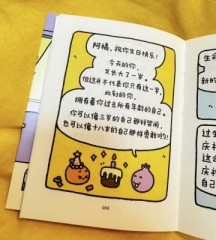 阿橘，祝你生日快乐！
今天的你，
又长大了一岁。
但这并不代表你只有这一岁，
此刻的你，
拥有着你过去所有年龄的自己。
你可以像三岁的自己那样哭闹，
也可以像十八岁的自己那样勇敢哟！
168
生命
过生
庆祝
庆祝